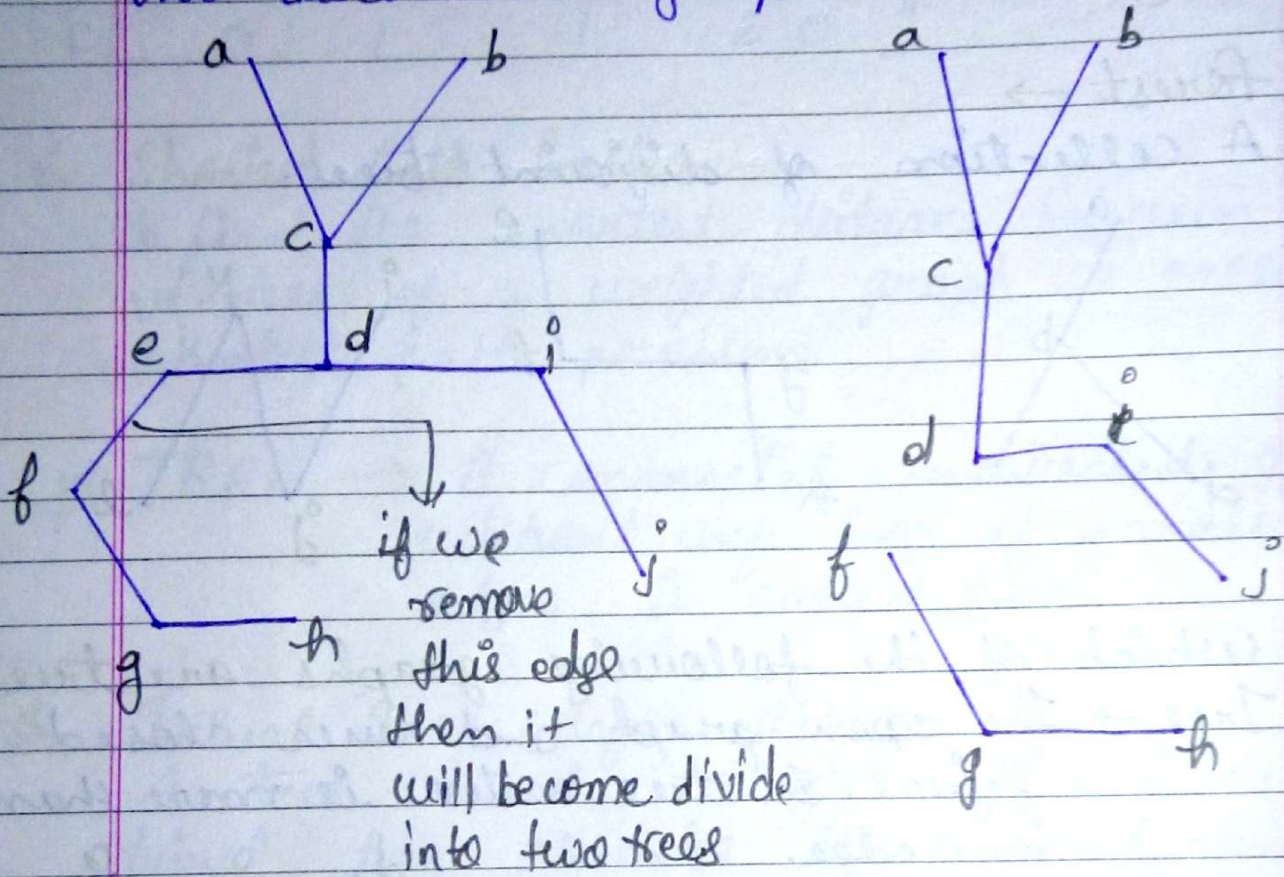 a b
c
e d i
f
g h
j
if we
remove
this edge
then it
will become divide
into two trees
a b
c
d i
j
f
g h